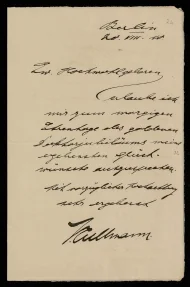 Berlin
Ew. Hochwohlgeboren
erlaube ich
mir zum morgigen
Ehrentage des goldenen
Doktorjubiläums meine
ergebensten Glück-
wünsche auszusprechen.
Mit vorzüglicher Hochachtung
sehr ergebenst